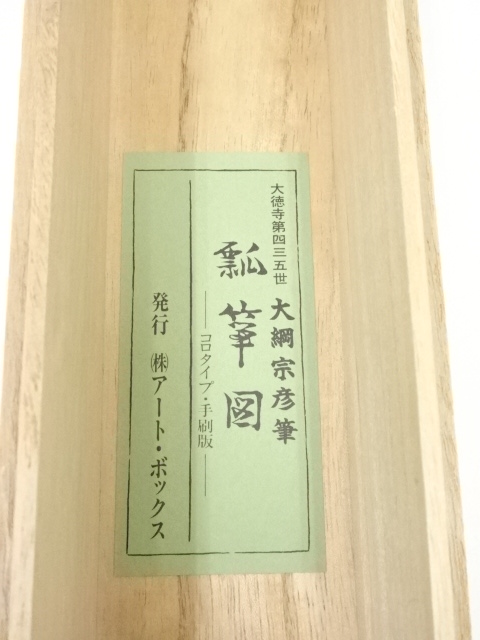 大徳寺第四三五世
大綱宗彦筆
瓢箪図
―コロタイプ・手刷版―
発行 ㈱アート・ボックス